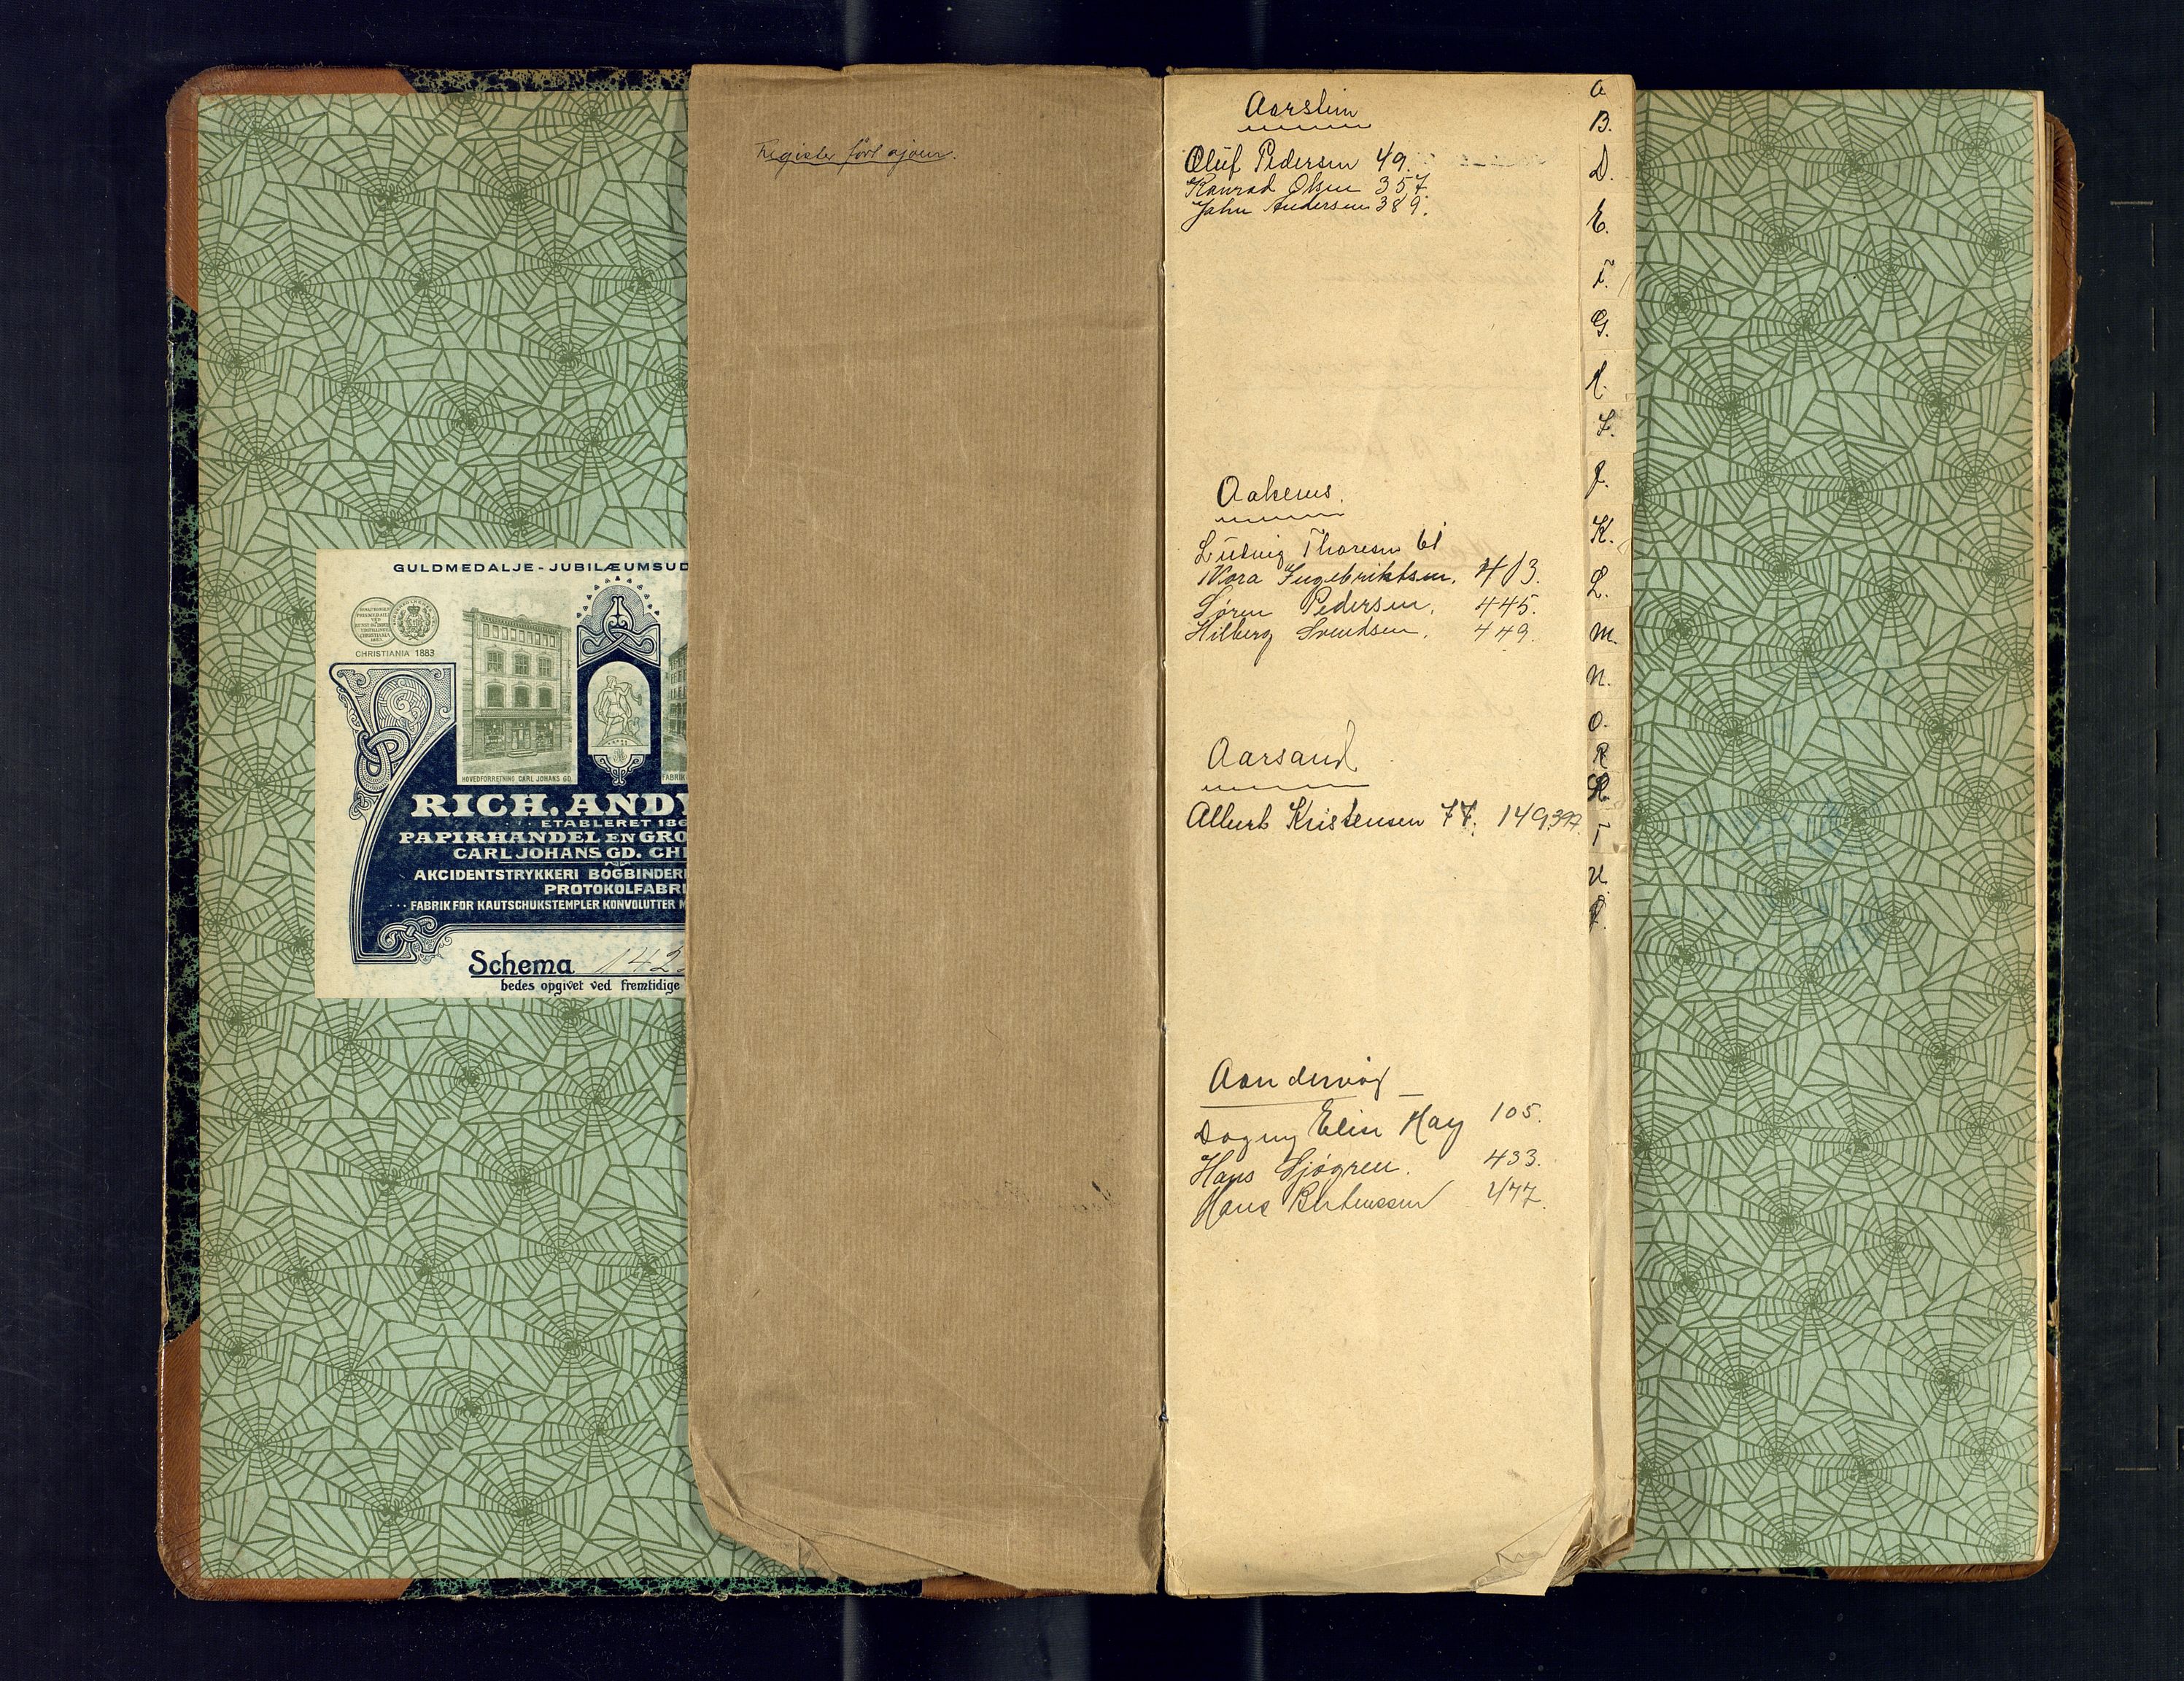 GULDMEDALJE-JUBILÆUMSUD
CHRISTIANIA 1883
HOVEDFORRETNING CARL JOHANS GD.
FABRIK
RICH. ANDV
ETABLERET 186
PAPIRHANDEL EN GRO
CARL JOHANS GD. CHR
AKCIDENTSTRYKKERI BOGBINDERI
PROTOKOLFABRI
FABRIK FOR KAUTSCHUKSTEMPLER KONVOLUTTER M
Schema 142
bedes opgivet ved fremtidige
Register ført ajour.
Aarstein
Oluf Pedersen 49.
Konrad Olsen 357
John Andersen 389.
Aakenes.
Ludvig Thoresen 61
Nora Ingebriktsen. 403.
Søren Pedersen. 445.
Hilberg Svendsen. 449.
Aarsand
Albert Kristensen 77. 149,397.
Aandervåg
Dagny Elise Hay 105.
Hans Sjøgren. 433.
Hans Berteussen 477.
A
B.
D.
E.
F.
G.
H.
I.
J.
K.
L.
M.
N.
O.
R
S.
T
U.
V.